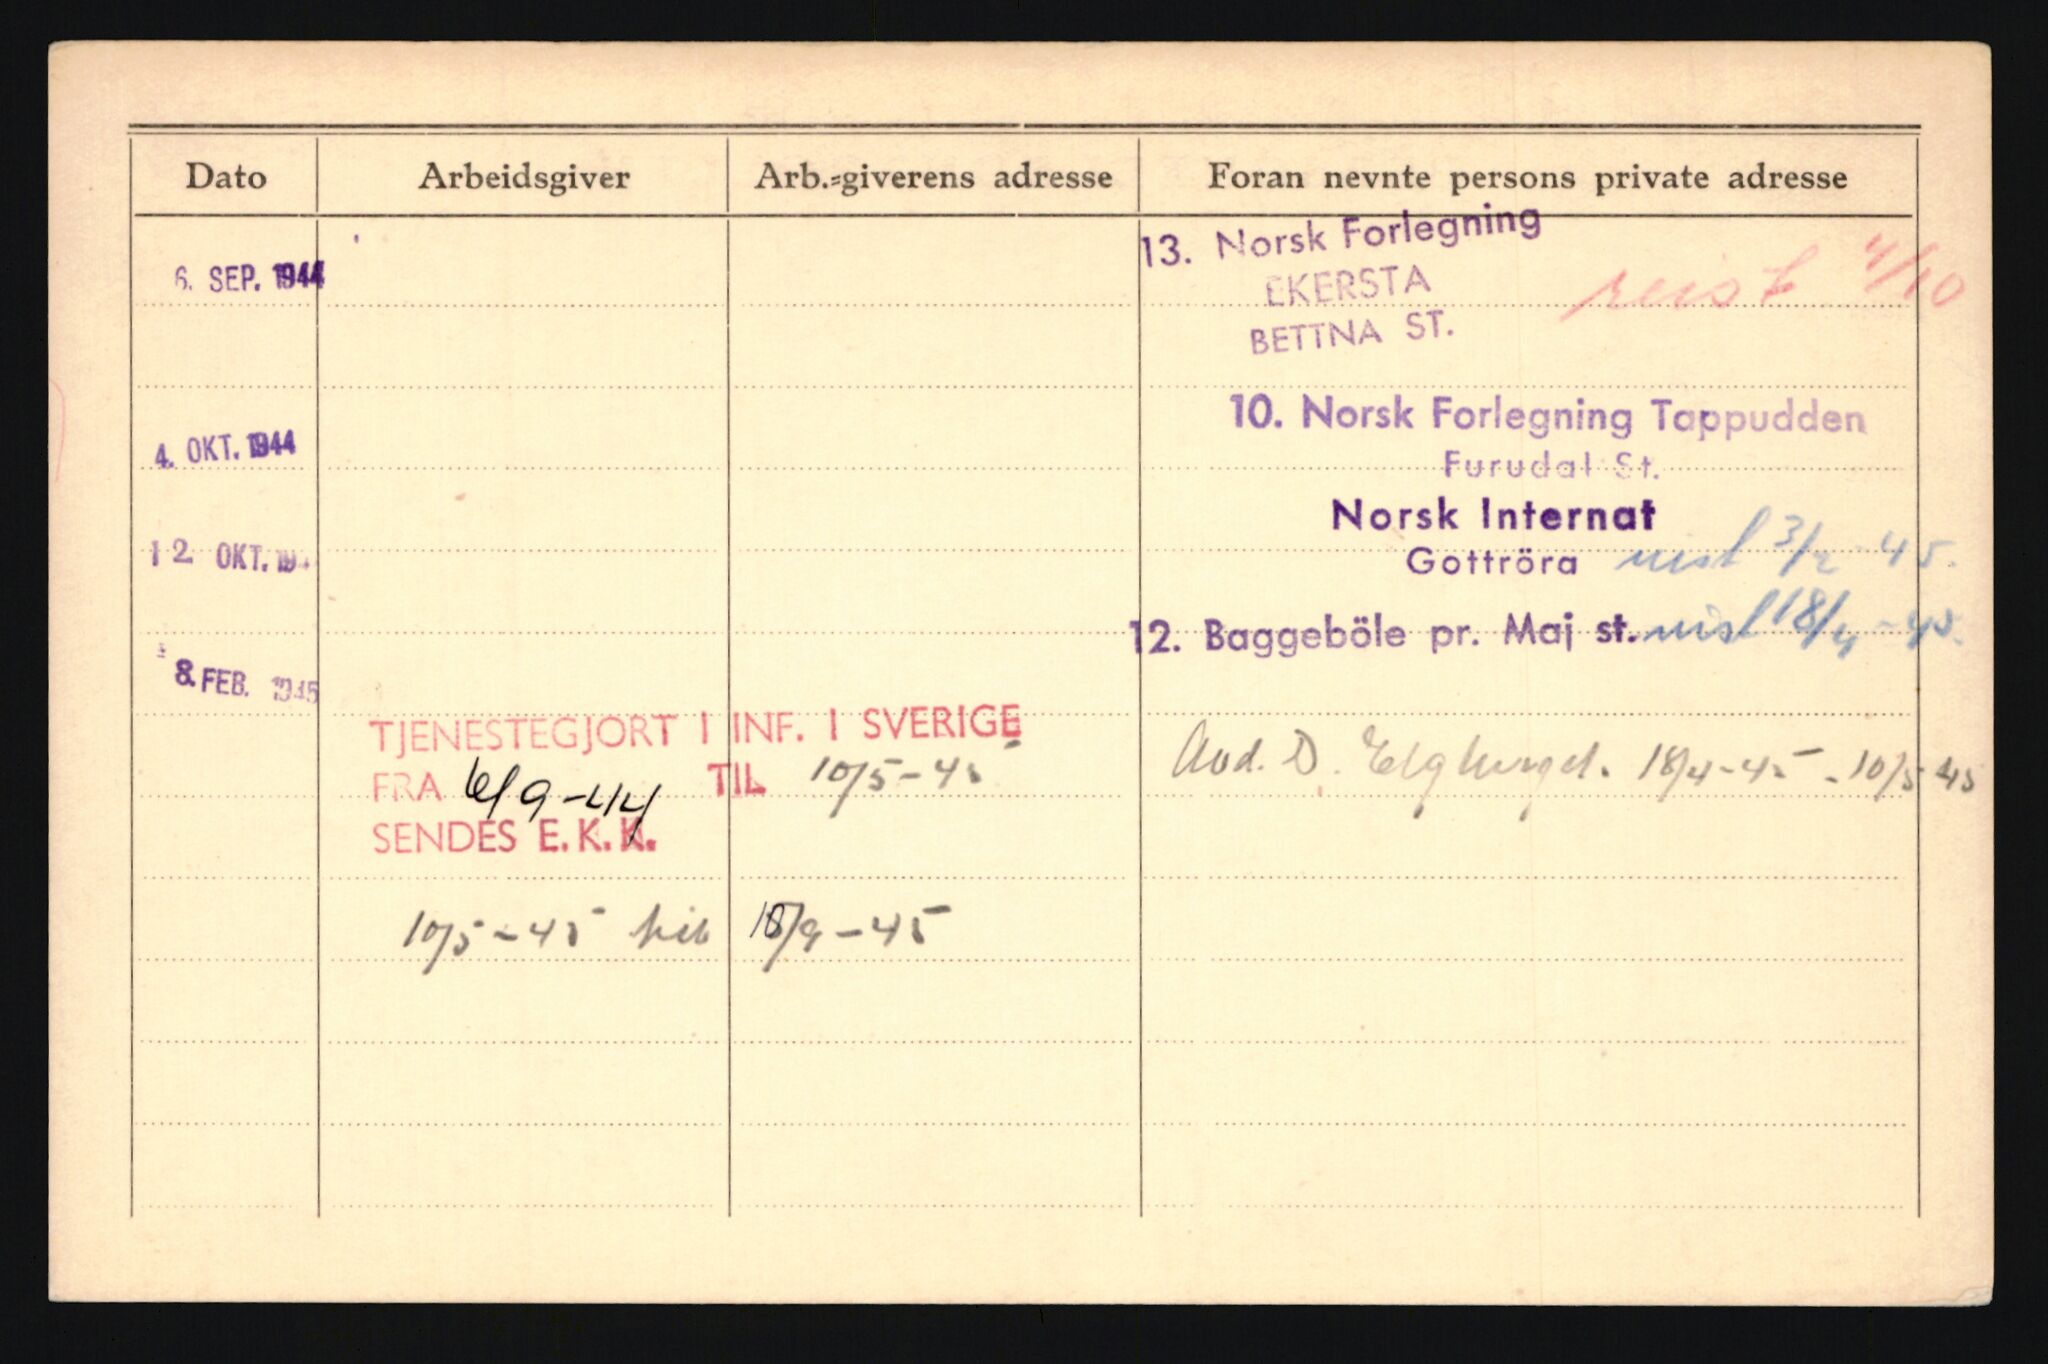 Dato Arbeidsgiver Arb.=giverens adresse Foran nevnte persons private adresse
6. SEP. 1944 13. Norsk Forlegning
EKERSTA reist 4/10
BETTNA ST.
4. OKT. 1944 10. Norsk Forlegning Tappudden
Furudal St.
12 OKT. 194 Norsk Internat
Gottröra reist 3/2 45.
12. Baggeböle pr. Maj st. reist 18/4-45.
8 FEB. 1945
TJENESTEGJORT I INF. I SVERIGE
FRA 6/9-44 TIL 10/5-45 Avd. D. 18/4-45 - 10/5 45
SENDES E.K.K.
10/5-45 til 18/9-45